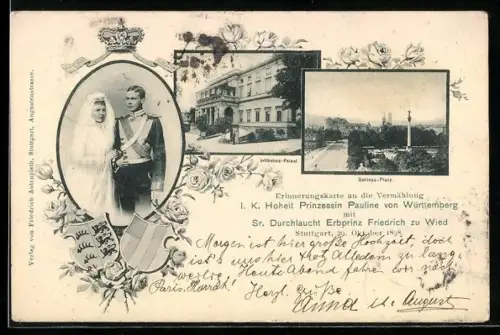 Verlag von Friedrich Autenrieth, Stuttgart, Augustenstrasse.
Wilhelms-Palast
Schloss-Platz.
Erinnerungskarte an die Vermählung
I. K. Hoheit Prinzessin Pauline von Würtemberg
mit
Sr. Durchlaucht Erbprinz Friedrich zu Wied
Stuttgart, 29. Oktober 1898.
Morgen ist hier große Hochzeit, doch
ist's uns hier trotz Alledem zu lang
weilig. Heute Abend fahren wir nach
Paris. Hurrah! Herzl. Grüße
Anna u. August